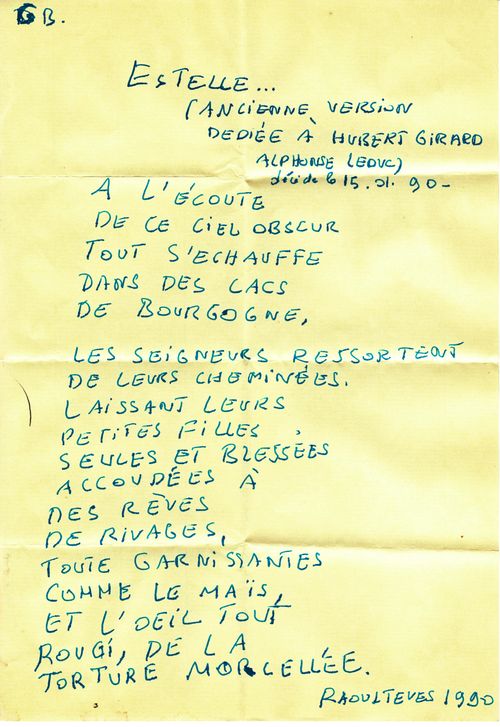 6 B.
ESTELLE...
(ANCIENNE VERSION
DEDIÉE À HUBERT GIRARD
ALPHONSE LEDUC)
15. 01. 90-
A L'ÉCOUTE
DE CE CIEL OBSCUR
TOUT S'ECHAUFFE
DANS DES LACS
DE BOURGOGNE,
LES SEIGNEURS RESSORTENT
DE LEURS CHEMINÉES.
LAISSANT LEURS
PETITES FILLES,
SEULES ET BLESSÉES
ACCOUDÉES À
DES RÊVES
DE RIVAGES,
TOUTE GARNISSANTES
COMME LE MAÏS,
ET L'OEIL TOUT
ROUGI, DE LA
TORTURE MORCELLÉE.
RAOULTEVES 1990